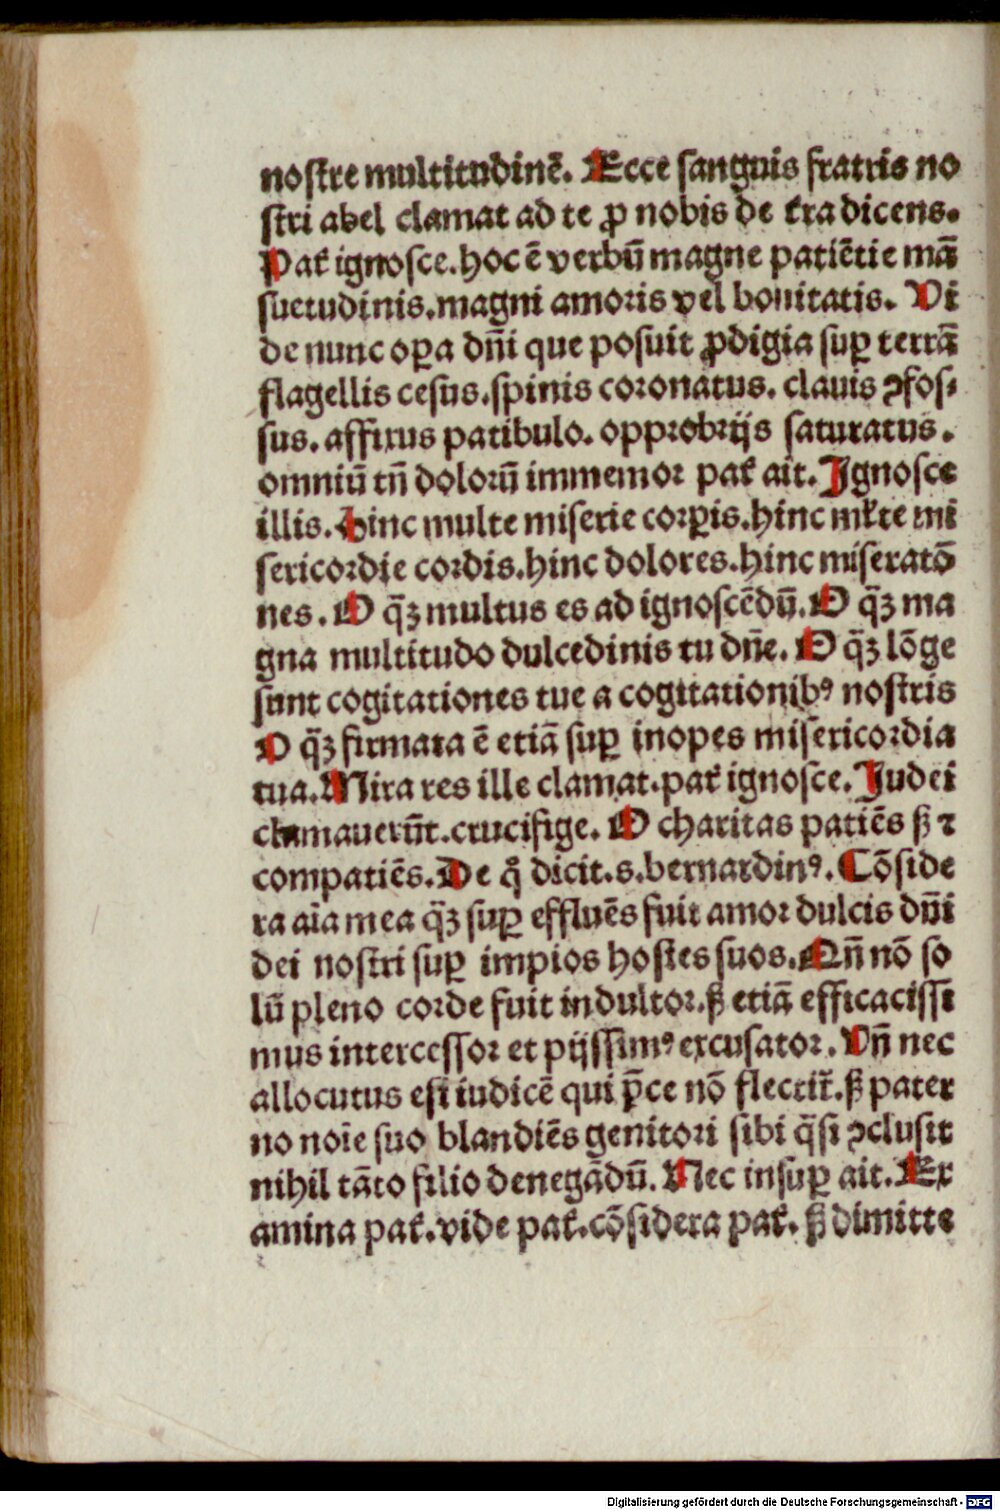 nostre multitudinē. Ecce sanguis fratris no
stri abel clamat ad te ꝓ nobis de t̄ra dicens.
Pat̄ ignosce. hoc ē verbū magne patiētie mā
suetudinis. magni amoris vel bonitatis. Vi
de nunc oꝑa dn̄i que posuit ꝓdigia suꝑ terrā
flagellis cesus. spinis coronatus. clauis ꝯfos⸗
sus. affixus patibulo. opprobrijs saturatus.
omniū tn̄ dolorū immemor pat̄ ait. Ignosce
illis. Hinc multe miserie corꝑis. hinc ml̄te mi
sericordie cordis. hinc dolores. hinc miseratō
nes. O q̄ꝫ multus es ad ignoscēdū. O q̄ꝫ ma
gna multitudo dulcedinis tu dn̄e. O q̄ꝫ lōge
sunt cogitationes tue a cogitationibꝰ nostris
O q̄ꝫ firmata ē etiā suꝑ inopes misericordia
tua. Mira res ille clamat. pat̄ ignosce. Iudei
clamauerūt. crucifige. O charitas patiēs ꝭß ⁊
compatiēs. De q̊ dicit. s. bernardinꝰ. Cōside
ra aīa mea q̄ꝫ suꝑ effluēs fuit amor dulcis dn̄i
dei nostri suꝑ impios hostes suos. Qn̄ nō so
lū pleno corde fuit indultor. ß etiā efficacissi
mus intercessor et pijssimꝰ excusator. Vn̄ nec
allocutus est iudicē qui p̄ce nō flectit̄. ß pater
no noīe suo blandiēs genitori sibi q̄si ꝯclusit
nihil tāto filio denegādū. Nec insuꝑ ait. Ex
amina pat̄. vide pat̄. cōsidera pat̄. ß dimitte
Digitalisierung gefördert durch die Deutsche Forschungsgemeinschaft - DFG